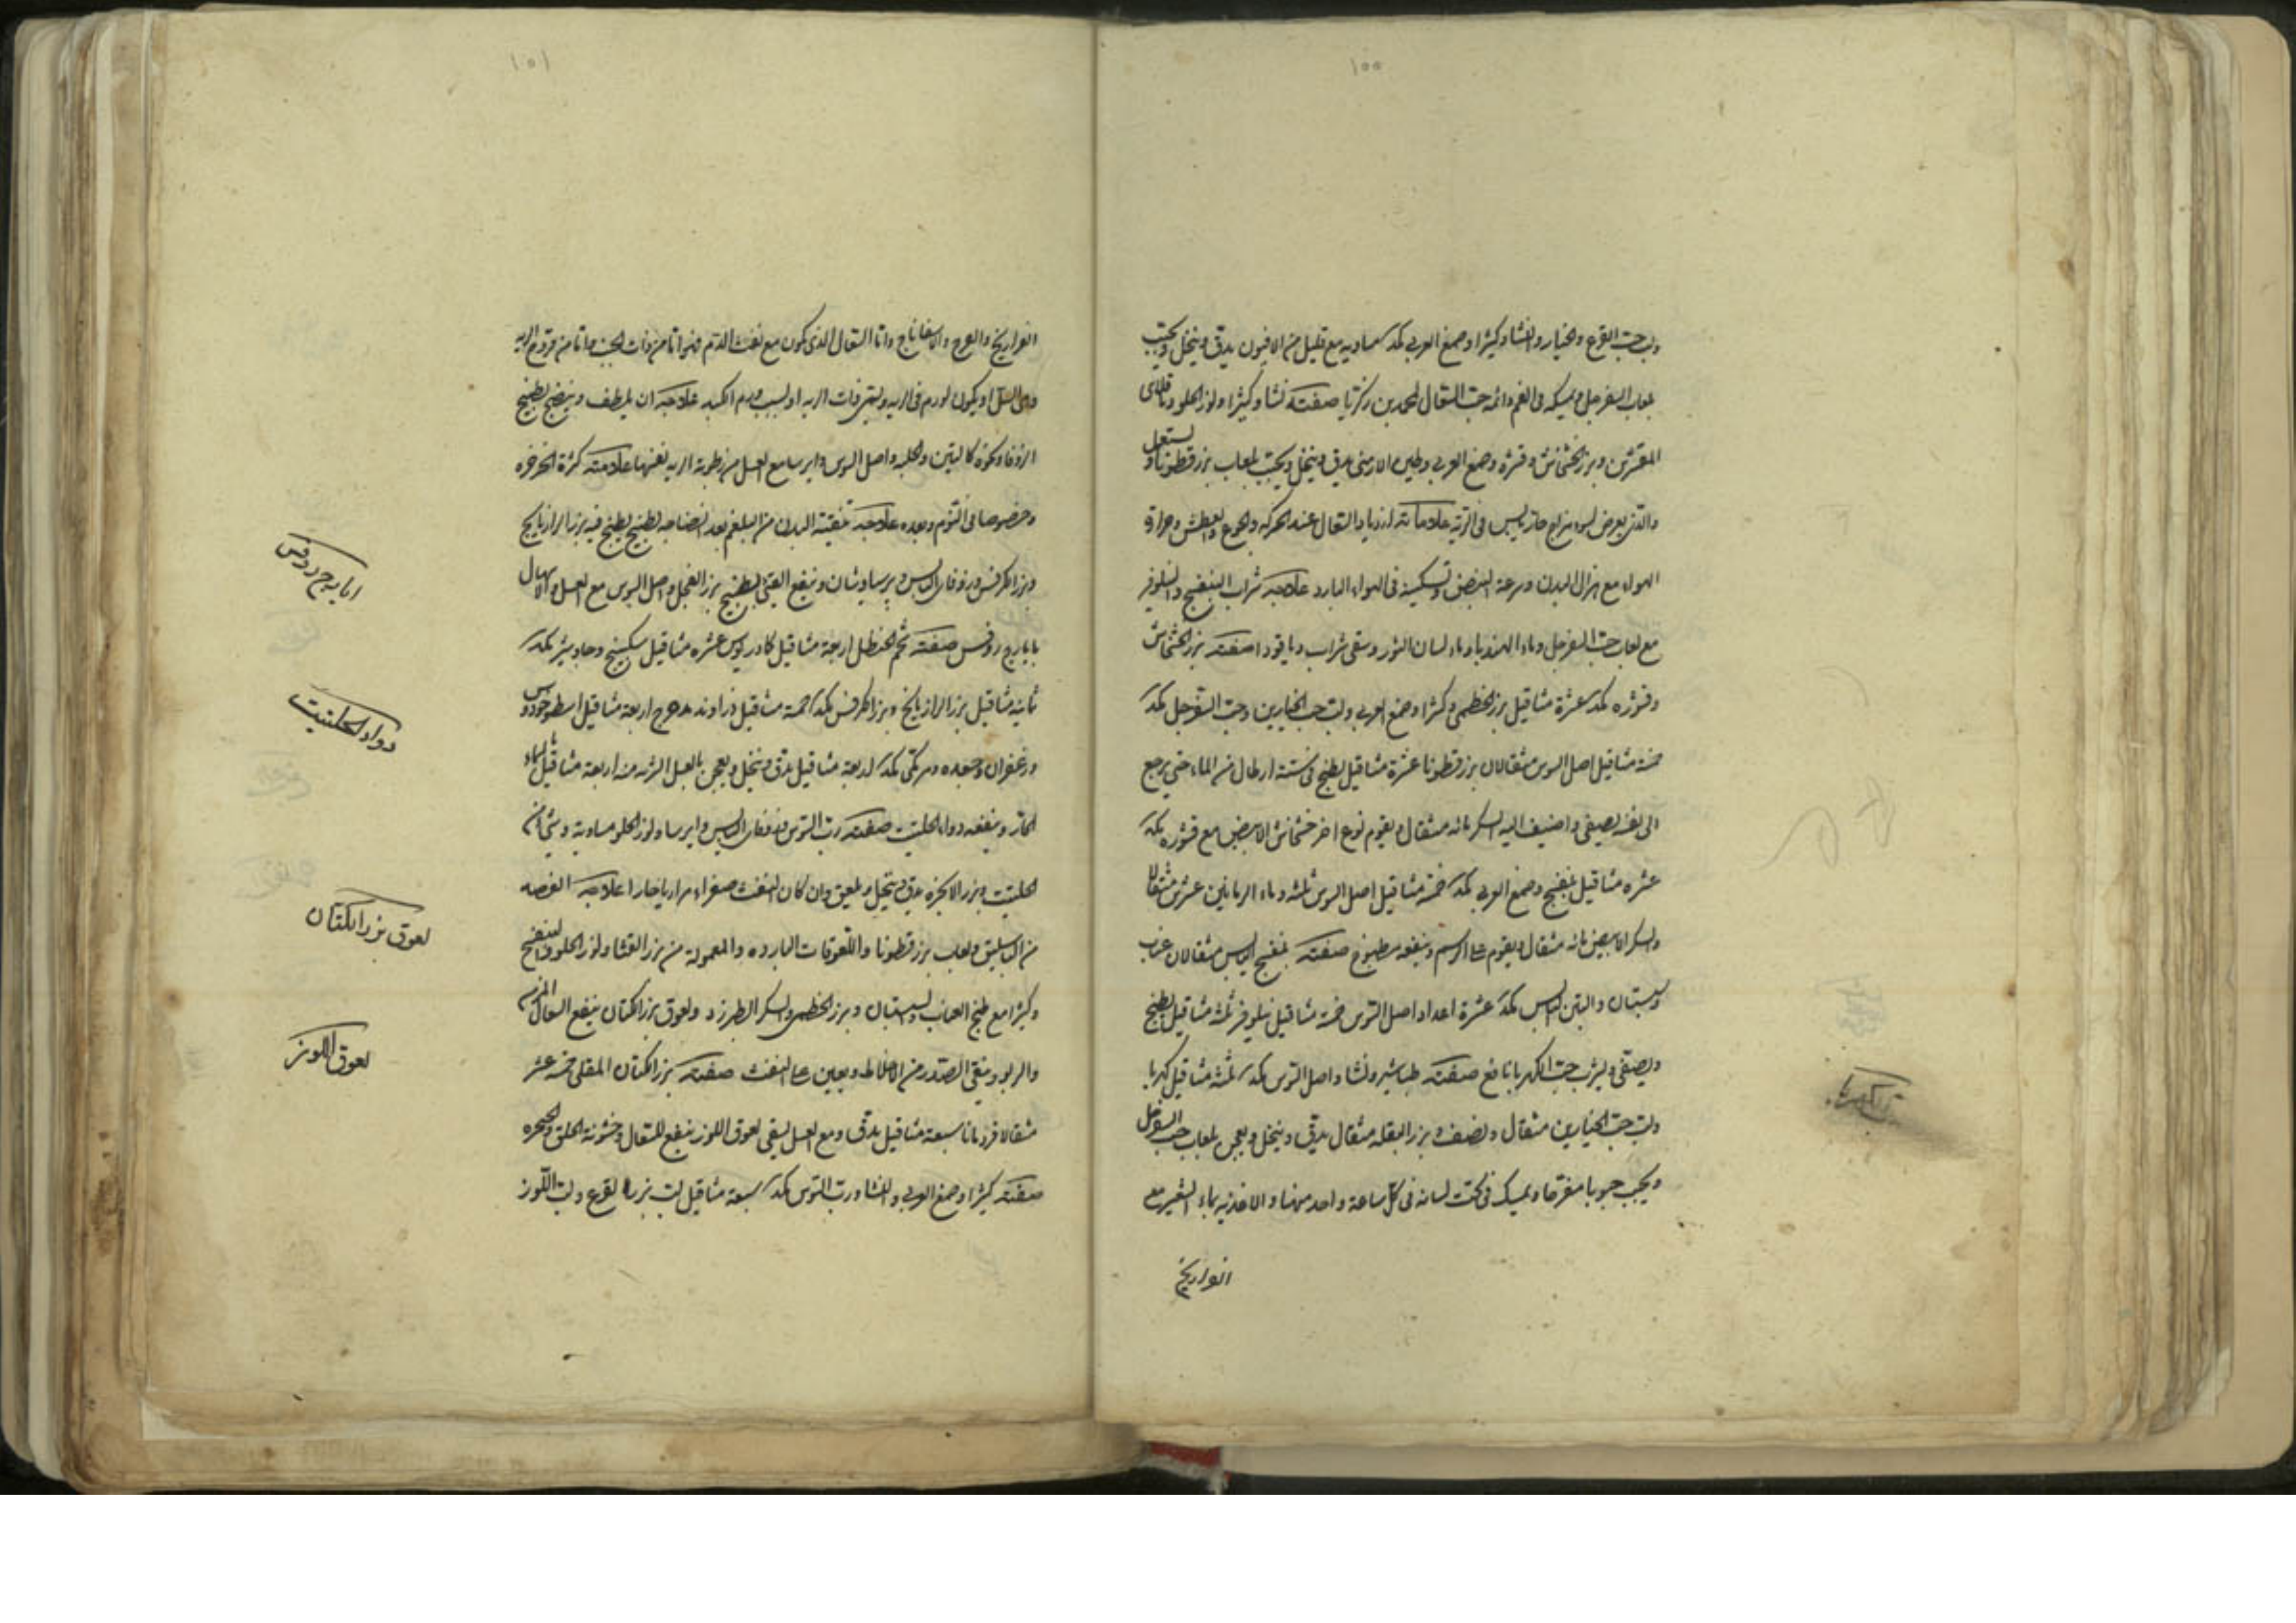 ١٠٠
ولب حب القرع والخيار والنشا وكثيرا وصمغ العربي مكد متساويه مع قليل من الافيون يدق وينخل ويحبب
بلعاب السفرجل ويمسكه فى الفم دائمه حب السعال لمحمد بن زكريا صفته نشا وكثيرا ولوز الحلو وباقلاى
المقشرين وبزر خشخاش وقشره وصمغ العربي وطين الارمنى يدق وينخل ويحبب بلعاب بزر قطونا ويستعمل
والذى يعرض لسوء مزاج حار يابس فى الريه علاماته ازدياد السعال عند الحركه والجوع والعطش وحرارة
الهواء مع هزال البدن وسرعة النبض وتسكينه فى الهواء البارد علاجه شراب البنفسج والنيلوفر
مع لعاب حب السفرجل وماء الهندبا وماء لسان الثور وسقى شراب دياقودا صفته بزر الخشخاش
وقشوره مكد عشرة مثاقيل بزر الخطمى وكثيرا وصمغ العربي ولب حب الخيارين وحب السفرجل مكد
خمسة مثاقيل اصل السوس مثقالان بزر قطونا عشرة مثاقيل يطبخ فى ستة ارطال من الماء حتى يرجع
الى نصفه يصفى واضيف اليه السكر مائه مثقال ويقوم نوع اخر خشخاش الابيض مع قشوره مكد
عشره مثاقيل بنفسج وصمغ العربي مكد خمسة مثاقيل اصل السوس ثلثه وماء الرمانين عشرين مثقالا
والسكر الابيض مائه مثقال ويقوم على الرسم وينفعه مطبوخ صفته بنفسج اليابس مثقالان عناب
وسبستان والتين اليابس مكد عشرة اعداد اصل السوس خمسة مثاقيل نيلوفر ثلثة مثاقيل يطبخ
ويصفى ويشرب حب الكهربا نافع صفته طباشير ونشا واصل السوس مكد ثلثة مثاقيل كهربا
ولب حب الخيارين مثقال ونصف وبزر البقله مثقال يدق وينخل ويعجن بلعاب حب السفرجل
ويحبب حبوبا مفرقا ويمسك فى تحت لسانه فى كل ساعة واحد منها والاغذيه بماء الشعير مع
الفراريج
حب الكهربا
١٠١
الفراريج والفروج والاسفاناج واما السعال الذى يكون مع نفث الدم فهو اما من ذات الجنب واما من قروح الريه
وهى السل او يكون لورم فى الريه ويسمى ذات الريه او لسبب ورم الكبد علاجه ان يلطف وينضج بطبيخ
الزوفا ونحوه كالتين والحلبه واصل السوس وايرسا مع العسل من رطوبة الريه نفسها علامته كثرة الخرخره
وخصوصا فى النوم وبعده علاجه تنقية البدن من البلغم بعد انضاجه بطبيخ يطبخ فيه بزر الرازيانج
وبزر الكرفس وزوفاى اليابس وبرسياوشان وينفع القى بطبيخ بزر الفجل واصل السوس مع العسل والاسهال
بايارج روفس صفته شحم الحنظل اربعة مثاقيل كمادريوس عشره مثاقيل سكبينج وجاوشير مكد
ثمانيه مثاقيل بزر الرازيانج وبزر الكرفس مكد خمسة مثاقيل زراوند مدحرج اربعة مثاقيل اسطوخودوس
وزعفران وجعده ومر مكى مكد اربعة مثاقيل يدق وينخل ويعجن بالعسل الشربه منه اربعة مثاقيل بالماء
الحار وينفعه دواء الحلتيت صفته رب السوس وزوفاى اليابس وايرسا ولوز الحلو متساوية وشئ من
الحلتيت وبزر الانجره يدق وينخل ويلعق وان كان النفث صفراء مراريا حارا علاجه الفصد
من الباسليق ولعاب بزر قطونا واللعوقات البارده والمعموله من بزر القثا ولوز الحلو والبنفسج
وكثيرا مع طبخ العناب والسبستان وبزر الخطمى والسكر الطبرزد ولعوق بزر الكتان ينفع السعال المزمن
والربو وينقى الصدر من الاخلاط ويعين على النفث صفته بزر الكتان المقلى خمسه عشر
مثقالا قردمانا سبعة مثاقيل يدق ومع العسل يسقى لعوق اللوز ينفع للسعال وخشونة الحلق والحنجره
صفته كثيرا وصمغ العربي والنشا ورب السوس مكد سبعة مثاقيل لب بزر القرع ولب اللوز
ايارج روفس
دواء الحلتيت
لعوق بزر الكتان
لعوق اللوز